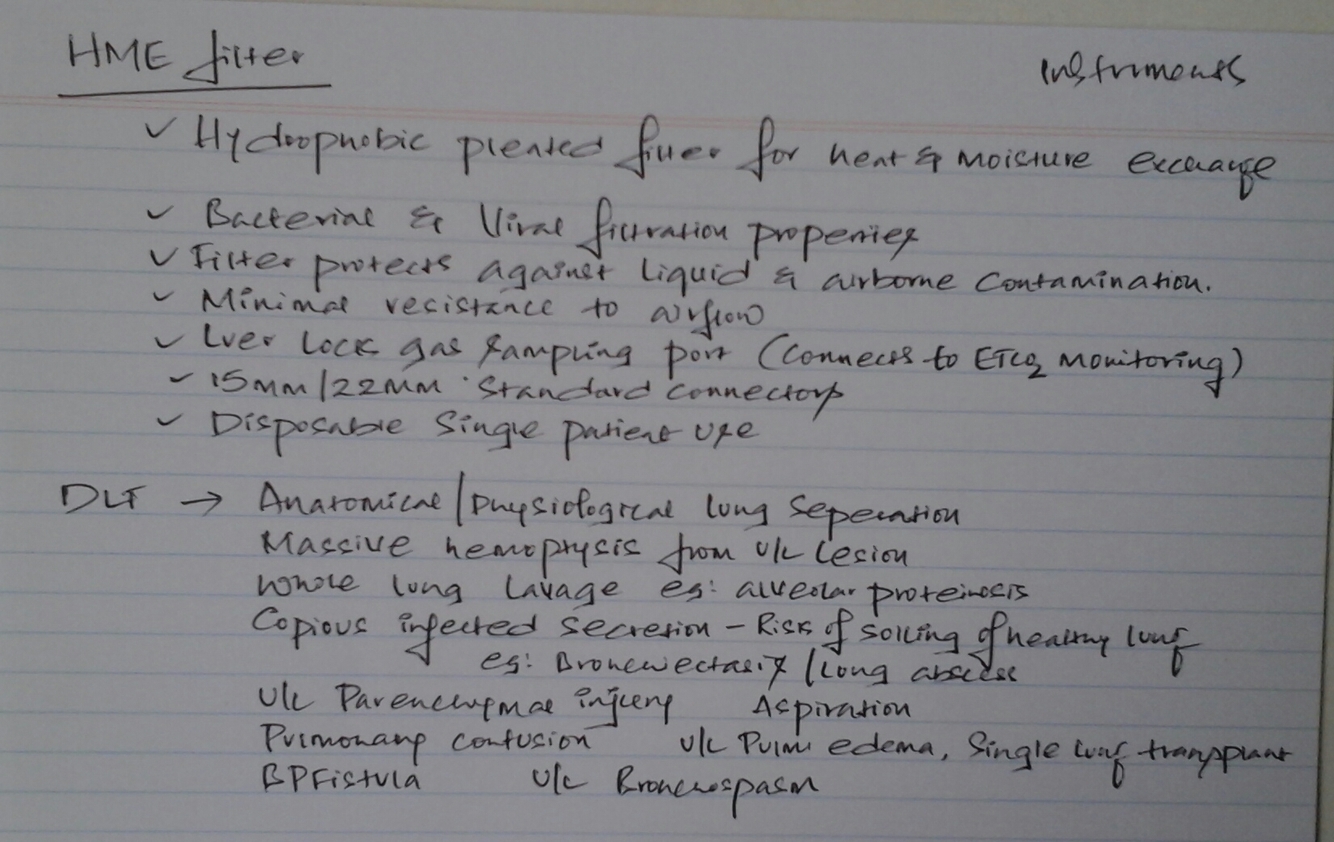 HME filter
Instruments
✓ Hydrophobic pleated filter for heat & moisture exchange
✓ Bacterial & Viral filtration properties
✓ Filter protects against liquid & airborne contamination.
✓ Minimal resistance to airflow
✓ Luer lock gas sampling port (connects to ETCO2 monitoring)
✓ 15mm/22mm standard connectors
✓ Disposable single patient use
DLT → Anatomical/physiological lung seperation
Massive hemoptysis from U/L lesion
Whole lung lavage eg: alveolar proteinosis
Copious infected secretion - Risk of soiling of healthy lung
eg: Bronchiectasis / lung abscess
U/L Parenchymal injury Aspiration
Pulmonary contusion U/L Pulm edema, Single lung transplant
BP Fistula U/L Bronchospasm